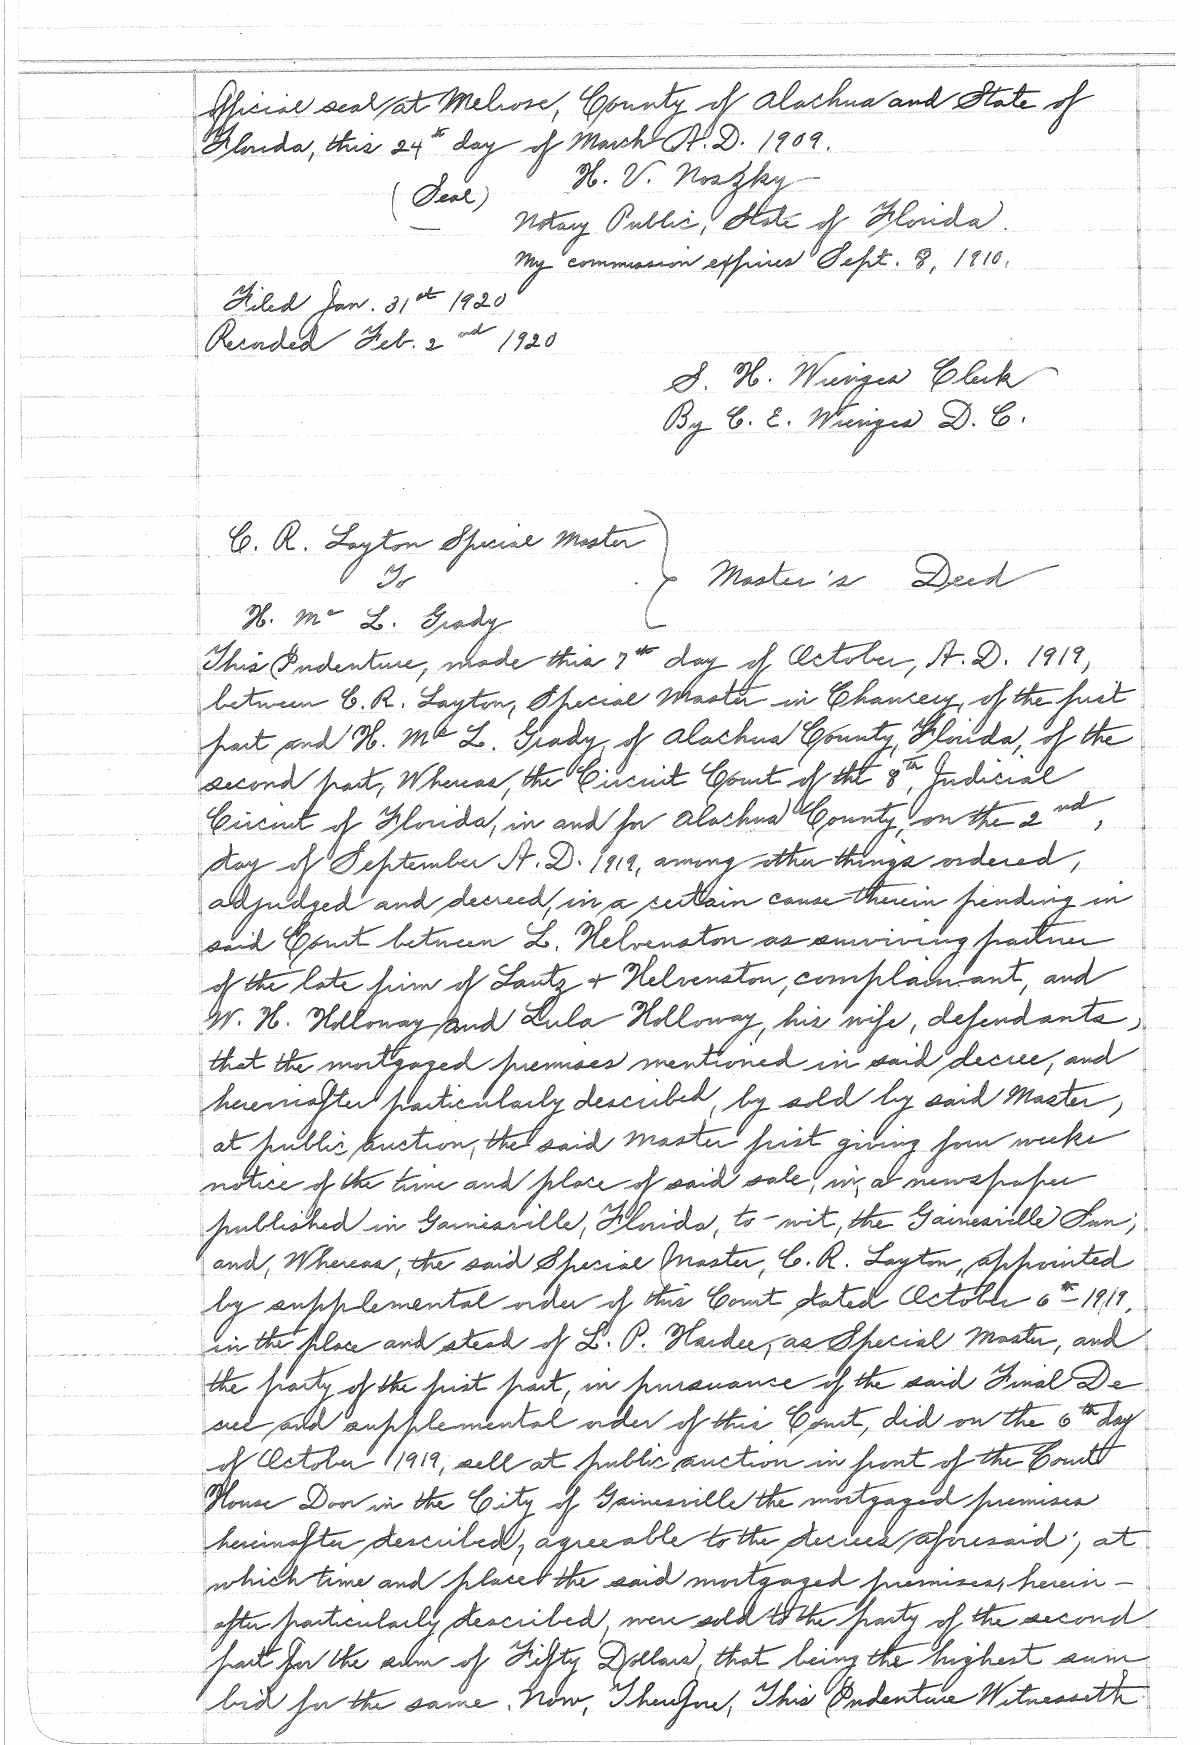 Official seal at Melrose, County of Alachua and State of
Florida, this 24th day of March A.D. 1909.
H. V. Noszky
(Seal)
Notary Public, State of Florida.
My commission expires Sept. 8, 1910.
Filed Jan. 31st 1920
Recorded Feb. 2nd 1920
S. H. Wienges Clerk
By C. E. Wienges D. C.
C. R. Layton Special Master
To
Master's Deed
H. Mc L. Grady
This Indenture, made this 7th day of October, A.D. 1919,
between C. R. Layton, Special Master in Chancery, of the first
part and H. Mc L. Grady, of Alachua County, Florida, of the
second part, Whereas, the Circuit Court of the 8th, Judicial
Circuit of Florida, in and for Alachua County, on the 2nd,
day of September A.D. 1919, among other things ordered,
adjudged and decreed, in a certain cause therein pending in
said Court between L. Helvenston as surviving partner
of the late firm of Lartz + Helvenston, complainant, and
W. H. Holloway and Lula Holloway, his wife, defendants,
that the mortgaged premises mentioned in said decree, and
hereinafter particularly described, by sold by said Master,
at public auction, the said Master first giving four weeks
notice of the time and place of said sale, in, a newspaper
published in Gainesville, Florida, to-wit, the Gainesville Sun;
and, Whereas, the said Special Master, C. R. Layton, appointed
by supplemental order of this Court dated October 6th 1919,
in the place and stead of L. P. Hardee, as Special Master, and
the party of the first part, in pursuance of the said Final De
cree and supplemental order of this Court, did on the 6th day
of October 1919, sell at public auction in front of the Court
House Door in the City of Gainesville the mortgaged premises
hereinafter described, agreeable to the decrees aforesaid; at
which time and place the said mortgaged premises, herein-
after particularly described, were sold to the party of the second
part for the sum of Fifty Dollars, that being the highest sum
bid for the same. Now, Therefore, This Indenture Witnesseth